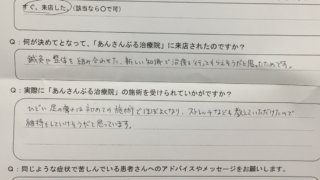 すぐ、来店した。(該当なら〇で可)
Q：何が決めてとなって、「あんさんぶる治療院」に来店されたのですか？
鍼灸や整体を組み合わせた、新しい知識で治療を行ってもらえそうだと思ったためです。
Q：実際に「あんさんぶる治療院」の施術を受けられていかがですか？
ひどい足の痛みは初めての施術でほぼなくなり、ストレッチなども教えていただけたので
維持もしていけそうだと思っています。
Q：同じような症状で苦しんでいる患者さんへのアドバイスやメッセージをお願いします。